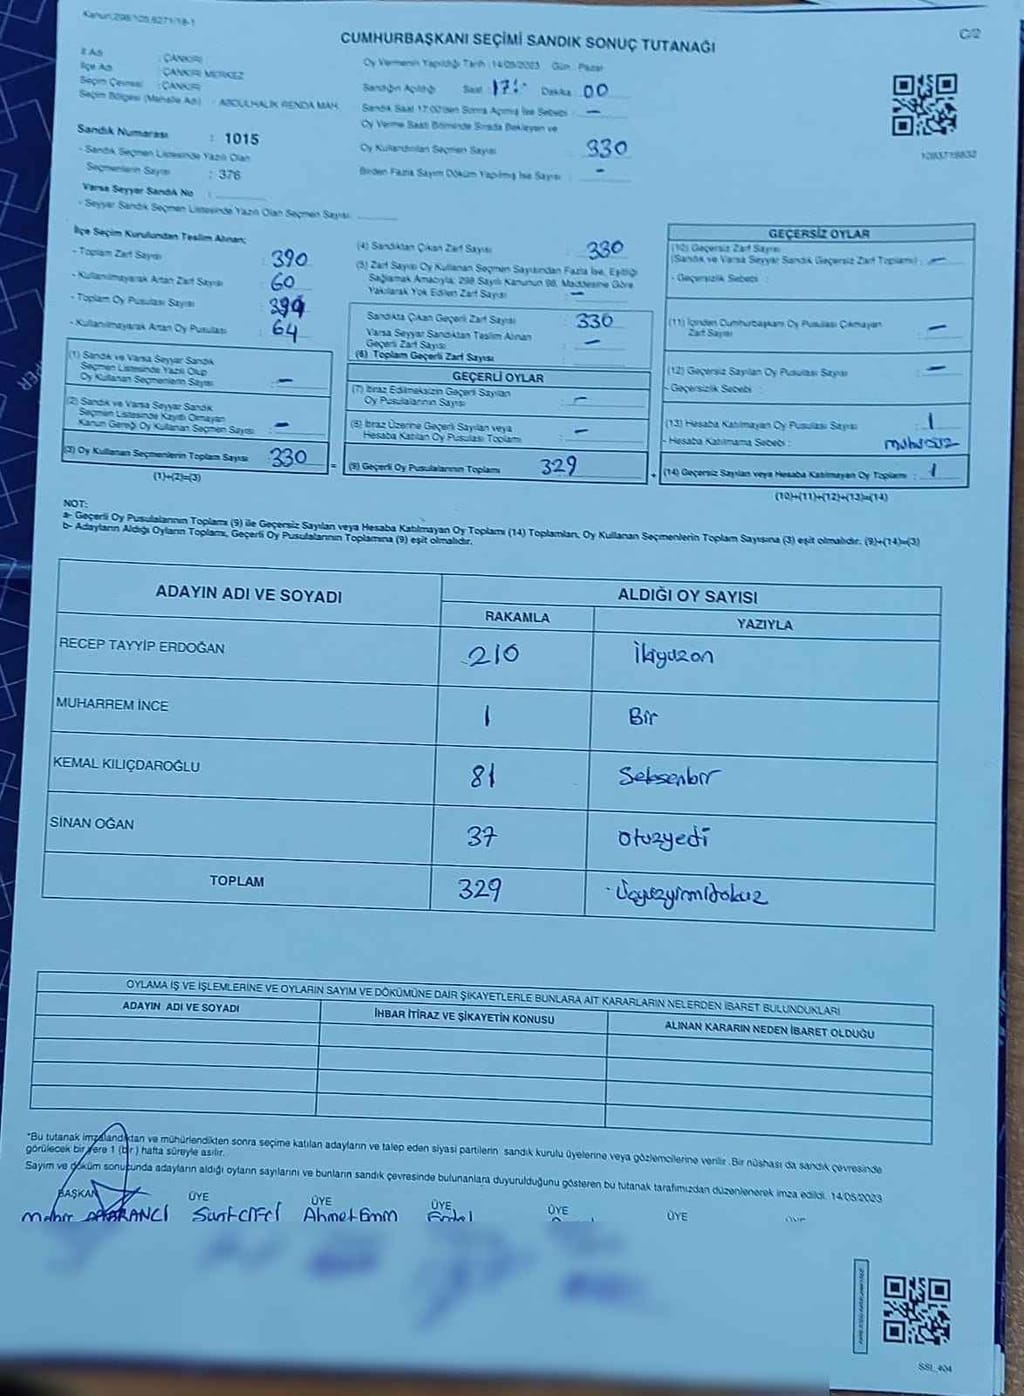 Kanun:298/105,6271/18-1
C/2
CUMHURBAŞKANI SEÇİMİ SANDIK SONUÇ TUTANAĞI
İl Adı : ÇANKIRI
İlçe Adı : ÇANKIRI MERKEZ
Seçim Çevresi : ÇANKIRI
Seçim Bölgesi (Mahalle Adı) : ABDULHALİK RENDA MAH.
Sandık Numarası : 1015
- Sandık Seçmen Listesinde Yazılı Olan
Seçmenlerin Sayısı : 376
Varsa Seyyar Sandık No :
- Seyyar Sandık Seçmen Listesinde Yazılı Olan Seçmen Sayısı:
Oy Vermenin Yapıldığı Tarih : 14/05/2023 Gün : Pazar
Sandığın Açıldığı Saat : 17:. Dakika : 00
Sandık Saat 17:00'den Sonra Açılmış İse Sebebi : —
Oy Verme Saati Bitiminde Sırada Bekleyen ve
Oy Kullandırılan Seçmen Sayısı : 330
Birden Fazla Sayım Döküm Yapılmış İse Sayısı : -
İlçe Seçim Kurulundan Teslim Alınan;
- Toplam Zarf Sayısı : 390
- Kullanılmayarak Artan Zarf Sayısı : 60
- Toplam Oy Pusulası Sayısı : 394
- Kullanılmayarak Artan Oy Pusulası : 64
(1) Sandık ve Varsa Seyyar Sandık
Seçmen Listesinde Yazılı Olup
Oy Kullanan Seçmenlerin Sayısı : —
(2) Sandık ve Varsa Seyyar Sandık
Seçmen Listesinde Kayıtlı Olmayan
Kanun Gereği Oy Kullanan Seçmen Sayısı : —
(3) Oy Kullanan Seçmenlerin Toplam Sayısı : 330
(1)+(2)=(3)
(4) Sandıktan Çıkan Zarf Sayısı : 330
(5) Zarf Sayısı Oy Kullanan Seçmen Sayısından Fazla İse, Eşitliği
Sağlamak Amacıyla, 298 Sayılı Kanunun 98. Maddesine Göre
Yakılarak Yok Edilen Zarf Sayısı : —
Sandıkta Çıkan Geçerli Zarf Sayısı : 330
Varsa Seyyar Sandıktan Teslim Alınan
Geçerli Zarf Sayısı : —
(6) Toplam Geçerli Zarf Sayısı :
GEÇERLİ OYLAR
(7) İtiraz Edilmeksizin Geçerli Sayılan
Oy Pusulalarının Sayısı : —
(8) İtiraz Üzerine Geçerli Sayılan veya
Hesaba Katılan Oy Pusulası Toplamı : —
= (9) Geçerli Oy Pusulalarının Toplamı : 329
GEÇERSİZ OYLAR
(10) Geçersiz Zarf Sayısı
(Sandık ve Varsa Seyyar Sandık Geçersiz Zarf Toplamı) : —
- Geçersizlik Sebebi :
(11) İçinden Cumhurbaşkanı Oy Pusulası Çıkmayan
Zarf Sayısı : —
(12) Geçersiz Sayılan Oy Pusulası Sayısı : —
- Geçersizlik Sebebi :
(13) Hesaba Katılmayan Oy Pusulası Sayısı : 1
- Hesaba Katılmama Sebebi : mühürsüz
+ (14) Geçersiz Sayılan veya Hesaba Katılmayan Oy Toplamı : 1
(10)+(11)+(12)+(13)=(14)
NOT:
a- Geçerli Oy Pusulalarının Toplamı (9) ile Geçersiz Sayılan veya Hesaba Katılmayan Oy Toplamı (14) Toplamları, Oy Kullanan Seçmenlerin Toplam Sayısına (3) eşit olmalıdır. (9)+(14)=(3)
b- Adayların Aldığı Oyların Toplamı, Geçerli Oy Pusulalarının Toplamına (9) eşit olmalıdır.
ADAYIN ADI VE SOYADI
ALDIĞI OY SAYISI
RAKAMLA YAZIYLA
RECEP TAYYİP ERDOĞAN 210 İkiyüzon
MUHARREM İNCE 1 Bir
KEMAL KILIÇDAROĞLU 81 Seksenbir
SİNAN OĞAN 37 Otuzyedi
TOPLAM 329 Üçyüzyirmidokuz
OYLAMA İŞ VE İŞLEMLERİNE VE OYLARIN SAYIM VE DÖKÜMÜNE DAİR ŞİKAYETLERLE BUNLARA AİT KARARLARIN NELERDEN İBARET BULUNDUKLARI
ADAYIN ADI VE SOYADI İHBAR İTİRAZ VE ŞİKAYETİN KONUSU ALINAN KARARIN NEDEN İBARET OLDUĞU
*Bu tutanak imzalandıktan ve mühürlendikten sonra seçime katılan adayların ve talep eden siyasi partilerin sandık kurulu üyelerine veya gözlemcilerine verilir. Bir nüshası da sandık çevresinde
görülecek bir yere 1 (bir) hafta süreyle asılır.
Sayım ve döküm sonucunda adayların aldığı oyların sayılarını ve bunların sandık çevresinde bulunanlara duyurulduğunu gösteren bu tutanak tarafımızdan düzenlenerek imza edildi. 14/05/2023
BAŞKAN ÜYE ÜYE ÜYE ÜYE ÜYE
Ahmet Emin
SSI_404